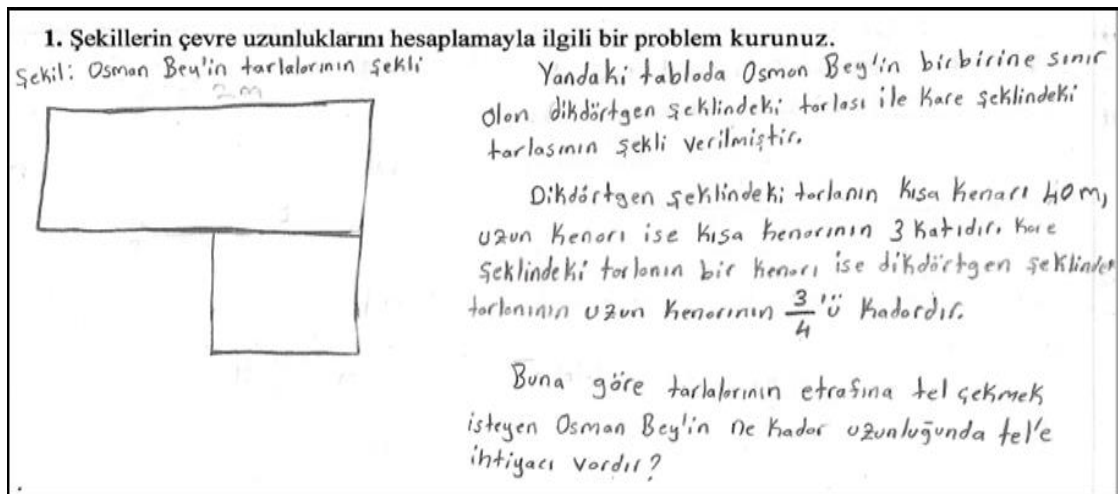 1. Şekillerin çevre uzunluklarını hesaplamayla ilgili bir problem kurunuz.
Şekil: Osman Bey'in tarlalarının şekli
2m
Yandaki tabloda Osman Bey'in birbirine sınır
olan dikdörtgen şeklindeki tarlası ile kare şeklindeki
tarlasının şekli verilmiştir.
Dikdörtgen şeklindeki tarlanın kısa kenarı 40m,
uzun kenarı ise kısa kenarının 3 katıdır. Kare
şeklindeki tarlanın bir kenarı ise dikdörtgen şeklindeki
tarlanının uzun kenarının 3/4 'ü kadardır.
Buna göre tarlalarının etrafına tel çekmek
isteyen Osman Bey'in ne kadar uzunluğunda tel'e
ihtiyacı vardır?